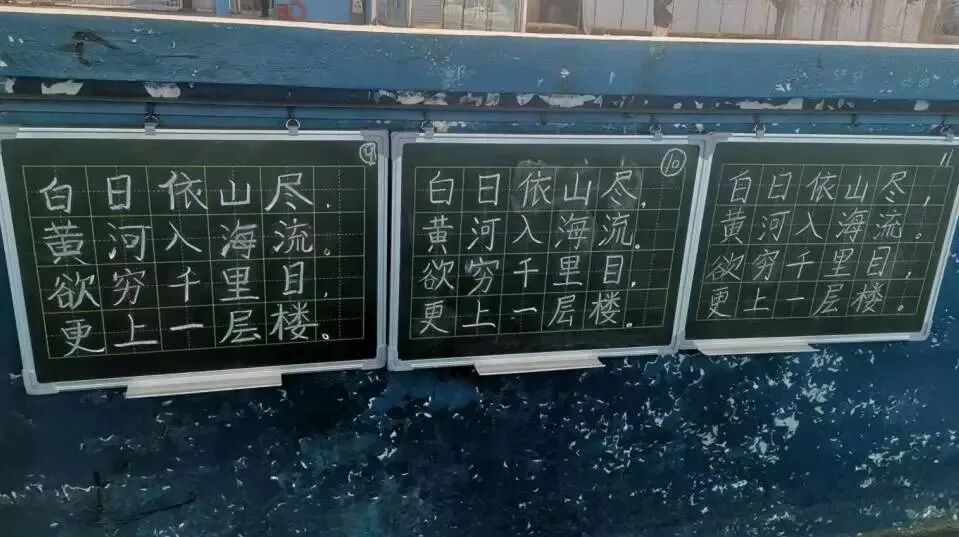 9
白日依山尽.
黄河入海流。
欲穷千里目.
更上一层楼。
10
白日依山尽,
黄河入海流。
欲穷千里目,
更上一层楼。
11
白日依山尽,
黄河入海流。
欲穷千里目,
更上一层楼。